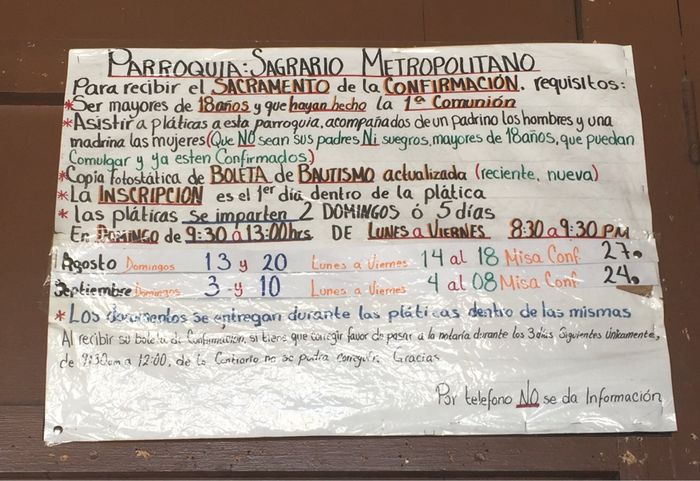 PARROQUIA: SAGRARIO METROPOLITANO
Para recibir el SACRAMENTO de la CONFIRMACIÓN. requisitos:
*Ser mayores de 18 años y que hayan hecho la 1ª Comunión
*Asistir a pláticas a esta parroquia, acompañados de un padrino los hombres y una
madrina las mujeres (Que NO sean sus padres Ni suegros, mayores de 18 años, que puedan
Comulgar y ya esten Confirmados)
*Copia fotostática de BOLETA de BAUTISMO actualizada (reciente, nueva)
*La INSCRIPCIÓN es el 1er día dentro de la plática
* las pláticas se imparten 2 DOMINGOS ó 5 días
En DOMINGO de 9:30 a 13:00hrs DE LUNES a VIERNES 8:30 a 9:30 PM
Agosto Domingos 13 y 20 Lunes a Viernes 14 al 18 Misa Conf 27.
Septiembre Domingos 3 y 10 Lunes a Viernes 4 al 08 Misa Conf 24.
* Los documentos se entregan durante las pláticas dentro de las mismas
Al recibir su boleta de Confirmación, si tiene que corregir favor de pasar a la notaría durante los 3 días siguientes únicamente,
de 9:30am a 12:00, de lo Contrario no se podrá corregir. Gracias
Por telefono NO se da Información